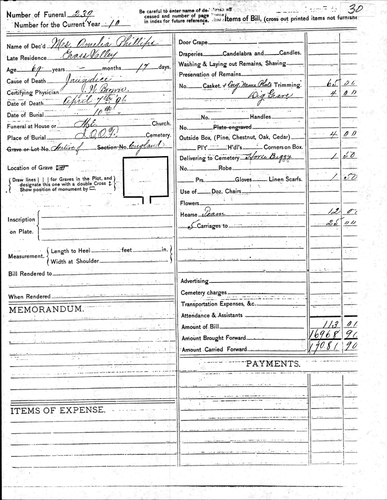 Number of Funeral 230
Number for the Current Year 10
Be careful to enter name of
cessed and number of page
in index for future reference.
Items of Bill, (cross out printed items not furnished
30
Name of Dec'd Mrs. Amelia Phillips
Late Residence Grass Valley
Age 69 years months 17 days
Cause of Death Jaundice
Certifying Physician
Date of Death April 7th 96
Date of Burial
Funeral at House or Church
Place of Burial I.O.O.F. Cemetery
Grave or Lot No. Native of Section No. England
Location of Grave
Draw lines for Graves in the Plot, and
designate this one with a double Cross
Show position of monument by
Inscription
on Plate.
Measurement, Length to Heel feet in.
Width at Shoulder
Bill Rendered to
When Rendered
MEMORANDUM.
ITEMS OF EXPENSE.
Door Crape
Draperies Candelabra and Candles.
Washing & Laying out Remains, Shaving
Preservation of Remains
No Casket, & Trimming. 65 00
Dig Grave 4 00
No Handles
Plate engraved
Outside Box, (Pine, Chestnut, Oak, Cedar) 4 00
PlY H'dl's Corners on Box.
Delivering to Cemetery Horse Buggy 1 50
No Robe
Prs. Gloves Linen Scarfs. 1 50
Use of Doz. Chairs
Flowers
Hearse Team 12 00
5 Carriages to 25 00
Advertising
Cemetery charges
Transportation Expenses, &c.
Attendance & Assistants
Amount of Bill 113 00
Amount Brought Forward 16968 90
Amount Carried Forward 17081 90
PAYMENTS.